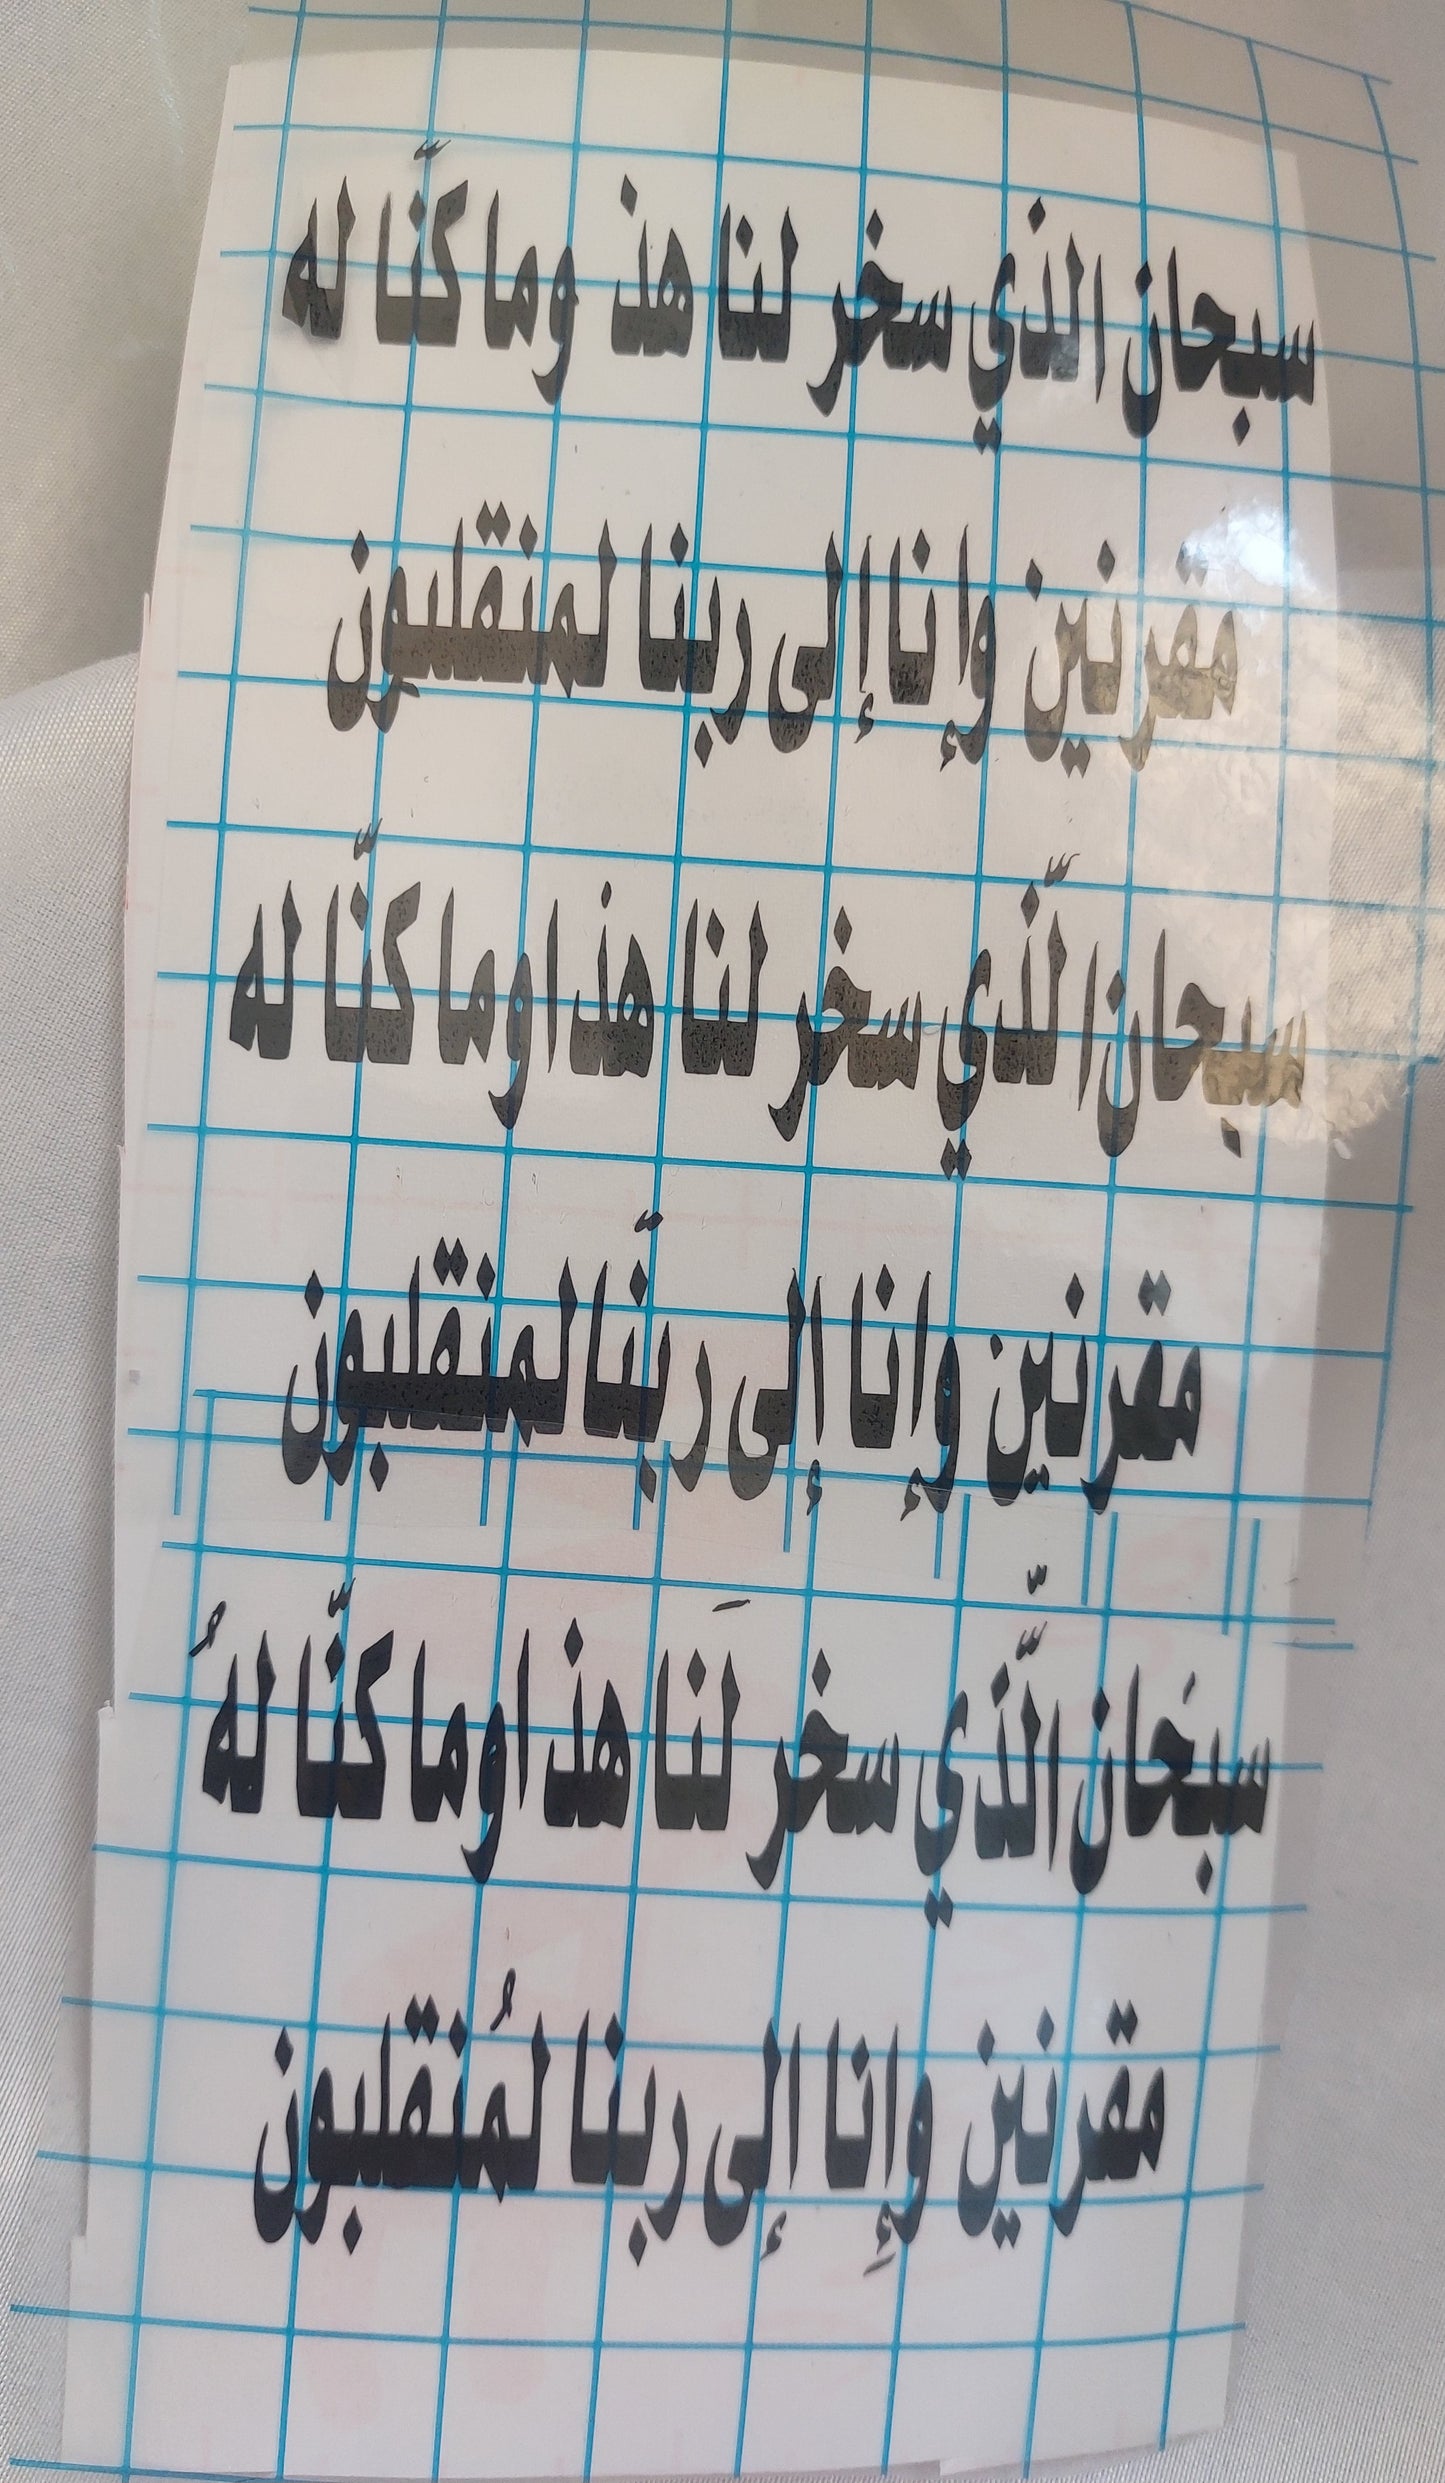 سبحان الذي سخر لنا هذ وما كنّا له
مقرنين وإنا إلى ربنا لمنقلبون
سبحان الّذي سخر لنا هذا وما كنّا له
مقرنين وإنا إلى ربّنا لمنقلبون
سبَحان الّذي سخر لَنا هذا وما كنّا لهُ
مقرنين وإِنا إلى ربنا لمُنقلبون